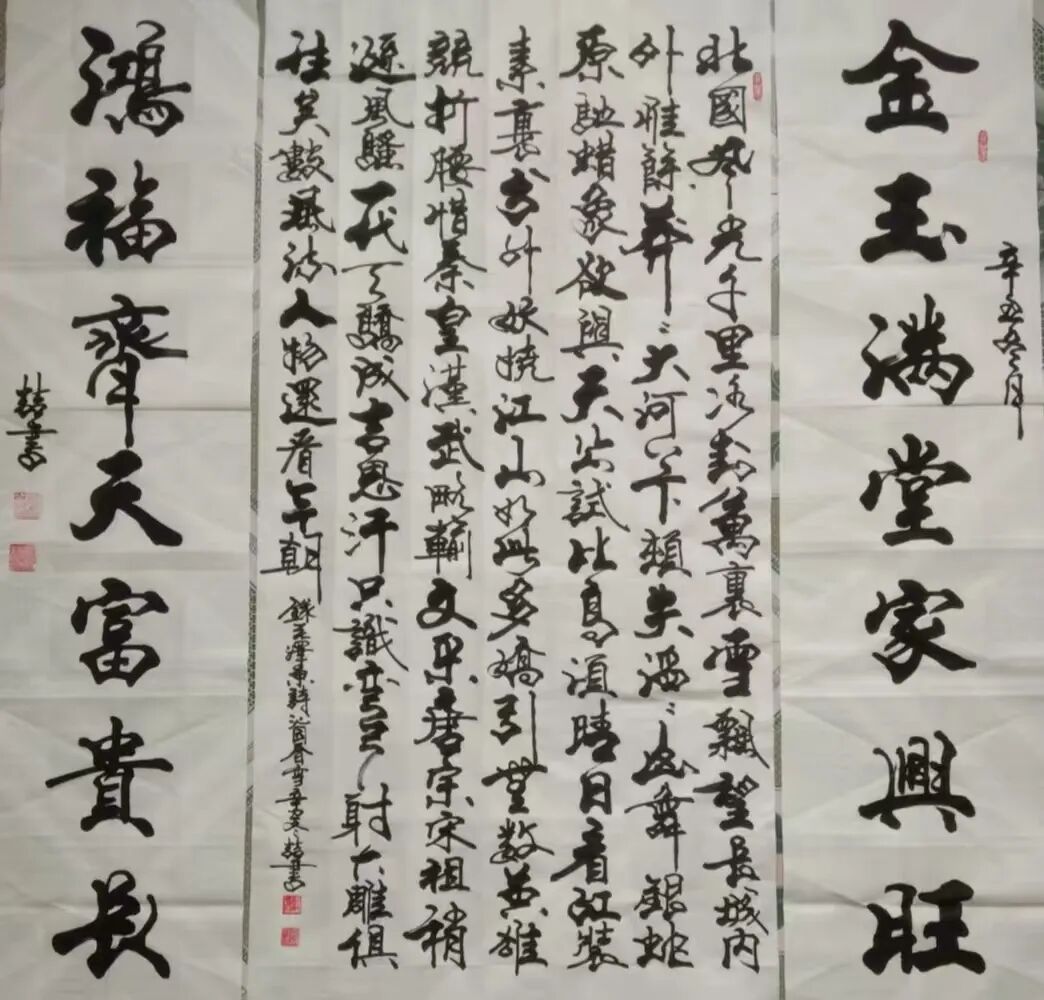 辛丑
金玉满堂家興旺
北國風光千里冰封萬裏雪飄望長城内
外惟餘莽〻大河上下頓失滔〻山舞銀蛇
原馳蜡象欲與天公試比高須晴日看红装
素裹分外妖娆江山如此多嬌引無数英雄
競折腰惜秦皇漢武略輸文采唐宗宋祖稍
遜風騷一代天驕成吉思汗只識彎弓射大雕俱
往矣數風流人物還看今朝
錄毛澤東詩沁園春雪辛丑喆書
鴻福齊天富貴長
喆書